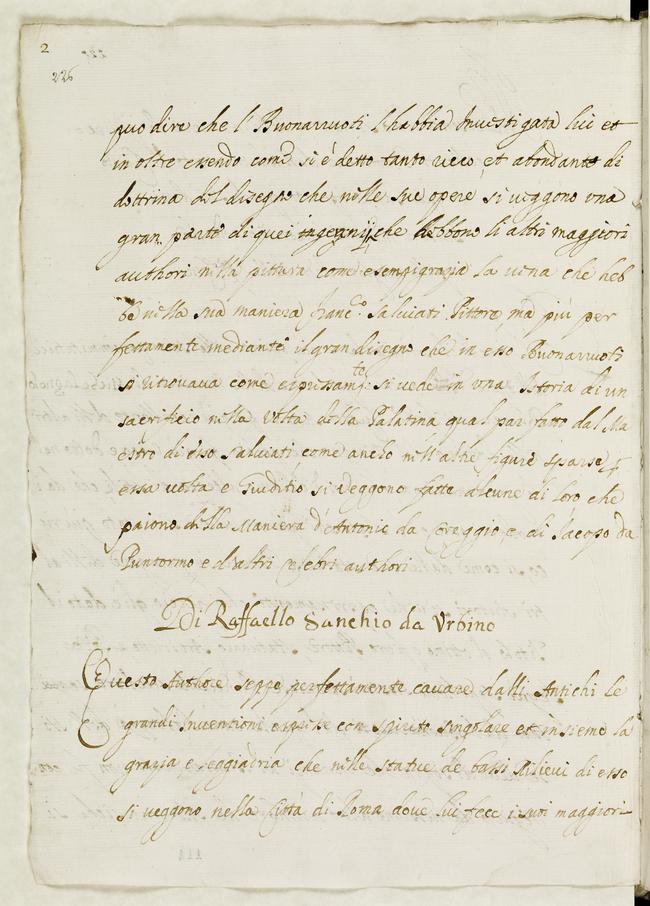 2
226
puo dire che l'Buonarruoti l'habbia Investigata lui et
in oltre essendo come si è detto tanto ricco, et abondante di
dottrina del disegno che nelle sue opere si veggono una
gran parte di quei ingegnij, che hebbono li altri maggiori
authori nella pittura come esempigrazia la vena che heb
be nella sua maniera Franc.º Salviati Pittore, ma più per
fettamente mediante il gran disegno che in esso Buonarruoti
si ritrovava come espressam.te si vede in una Istoria di un
sacrificio nella volta della Palatina qual par fatto dal Ma
estro di esso Salviati come anche nell'altre figure sparse p
essa volta e Giuditio si veggono fatte alcune di loro che
paiono della Maniera d'Antonio da Coreggio, e di Jacopo da
Puntormo, e d'altri Celebri authori
Di Raffaello Sanchio da Urbino
Questo Authore seppe perfettamente cavare dalli Antichi le
grandi Inventioni espresse con spirito singolare et insieme la
grazia e leggiadria che nelle statue de bassi Rilievi di esso
si veggono nella Città di Roma dove lui fece i suoi maggiori